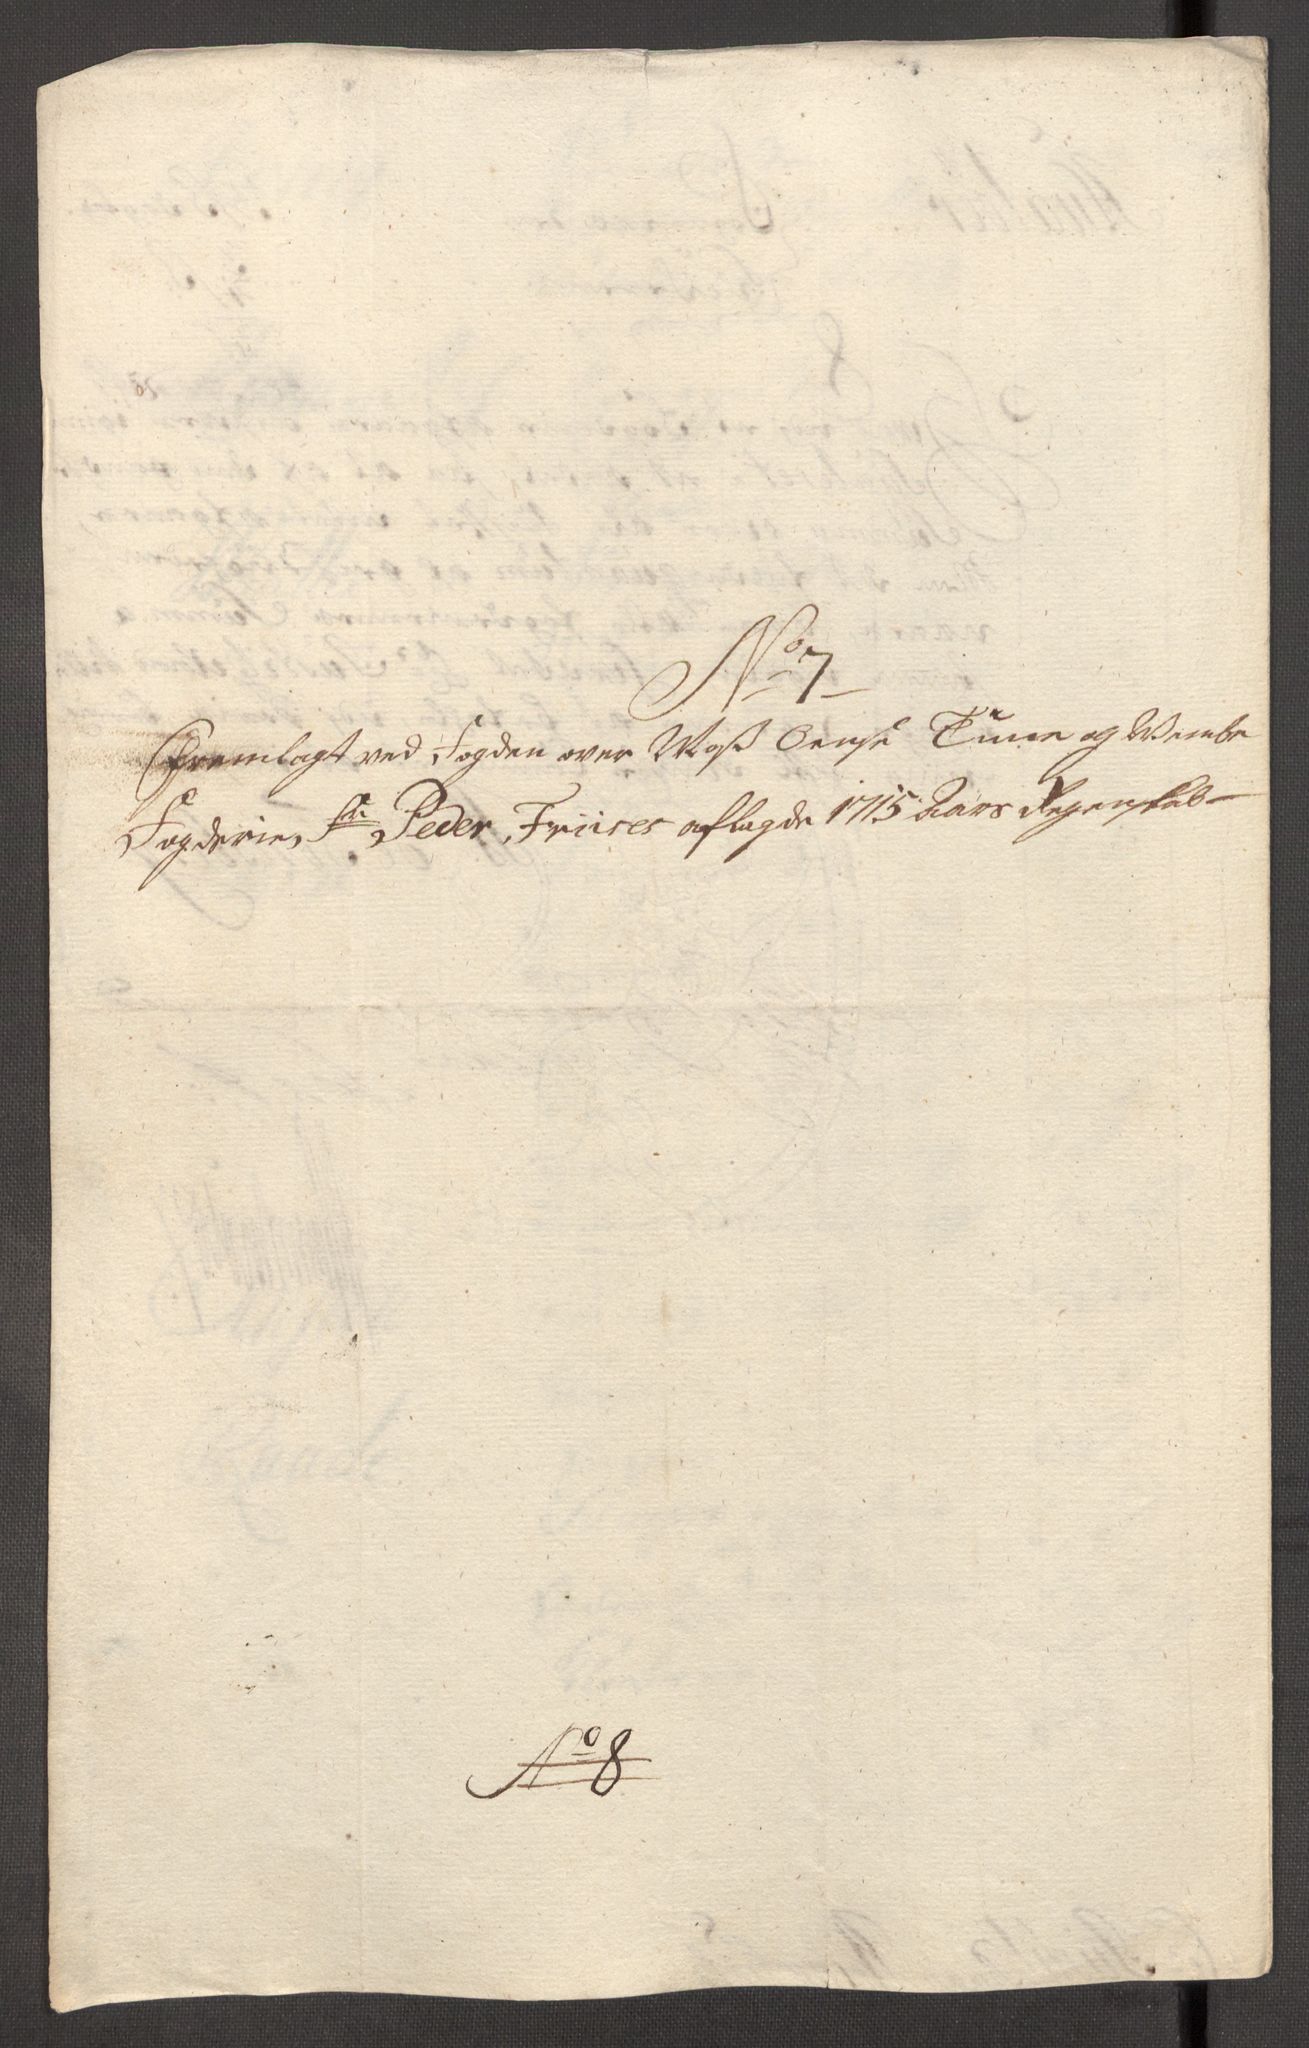 No 7
Fremlagt ved Fogden over Moß Oensø Tune og Wembe
Fogderie, Sr. Peder Friises aflagde 1715 Aars Regenskab
No 8